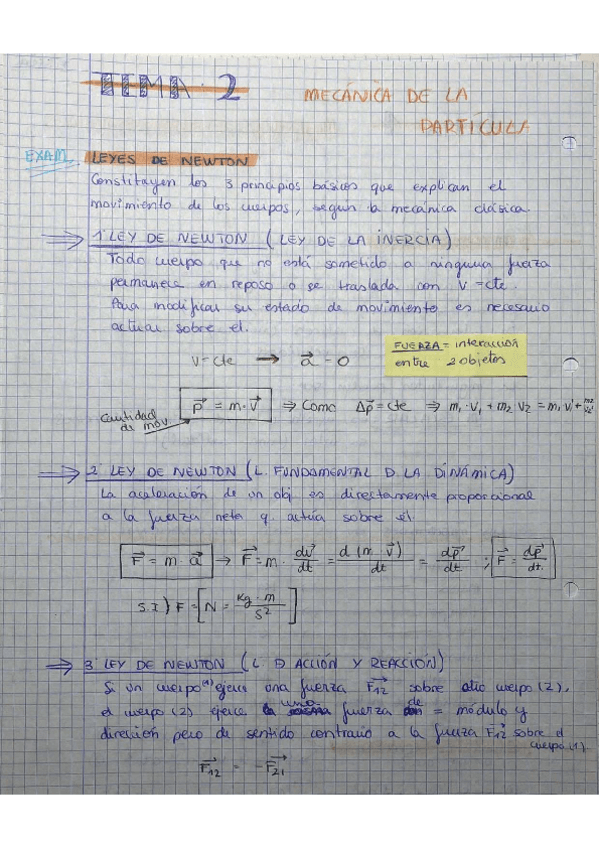 TEMA 2 MECÁNICA DE LA
PARTÍCULA
EXAM. LEYES DE NEWTON
Constituyen los 3 principios básicos que explican el
movimiento de los cuerpos, segun la mecánica clásica.
⇒ 1ª LEY DE NEWTON (LEY DE LA INERCIA)
Todo cuerpo que no está sometido a ninguna fuerza
permanece en reposo o se traslada con v = cte.
Para modificar su estado de movimiento es necesario
actuar sobre el.
FUERZA = interacción
entre 2 objetos
v = cte → a⃗ = 0
Cantidad
de mov.
p⃗ = m · v⃗ ⇒ Como Δp⃗ = cte ⇒ m₁ · v₁ + m₂ v₂ = m₁ v₁' + m₂ v₂'
⇒ 2ª LEY DE NEWTON (L. FUNDAMENTAL D. LA DINÁMICA)
La aceleración de un obj es directamente proporcional
a la fuerza neta q. actúa sobre él.
F⃗ = m · a⃗ → F⃗ = m · dv⃗/dt = d(m · v⃗)/dt = dp⃗/dt ; F⃗ = dp⃗/dt.
S.I) F = [N = kg · m/s²]
⇒ 3ª LEY DE NEWTON (L. D ACCIÓN Y REACCIÓN)
Si un cuerpo (1) ejerce una fuerza F⃗₁₂ sobre otro cuerpo (2),
el cuerpo (2) ejerce una fuerza de = módulo y
dirección pero de sentido contrario a la fuerza F⃗₁₂ sobre el
cuerpo (1).
F⃗₁₂ = -F⃗₂₁